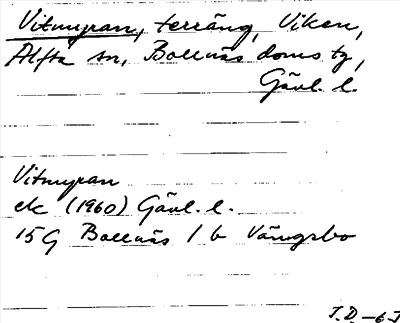 Vitmyran, terräng, Viken,
Alfta sn, Bollnäs doms tg,
Gävl. l.
Vitmyran
ek (1960) Gävl. l.
15G Bollnäs 1 b Vängsbo